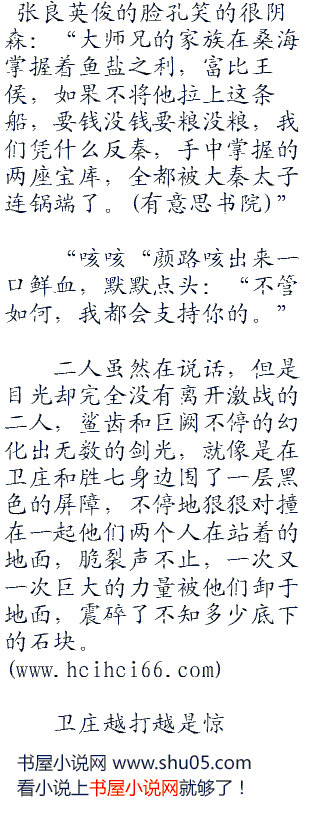 张良英俊的脸孔笑的很阴
森：“大师兄的家族在桑海
掌握着鱼盐之利，富比王
侯，如果不将他拉上这条
船，要钱没钱要粮没粮，我
们凭什么反秦，手中掌握的
两座宝库，全都被大秦太子
连锅端了。(有意思书院)”
“咳咳“颜路咳出来一
口鲜血，默默点头：“不管
如何，我都会支持你的。”
二人虽然在说话，但是
目光却完全没有离开激战的
二人，鲨齿和巨阙不停的幻
化出无数的剑光，就像是在
卫庄和胜七身边围了一层黑
色的屏障，不停地狠狠对撞
在一起他们两个人在站着的
地面，脆裂声不止，一次又
一次巨大的力量被他们卸于
地面，震碎了不知多少底下
的石块。
(www.hcihci66.com)
卫庄越打越是惊
书屋小说网 www.shu05.com
看小说上书屋小说网就够了！